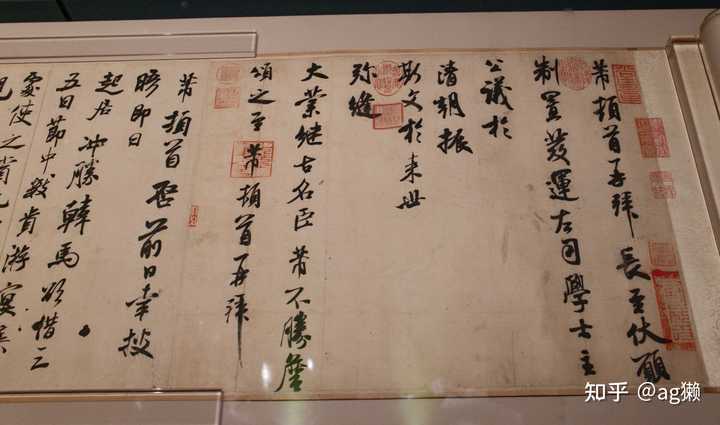 芾頓首再拜長至伏願
制置發運左司學士主
公議於
清朝振
斯文於来世
弥縫
大業継古名臣芾不勝詹
頌之至芾頓首再拜
芾頓首啓前日幸披
晤即日
起居沖勝韓馬欲借三
五日節中數貴游宴集
處使之賞
知乎 @ag獭